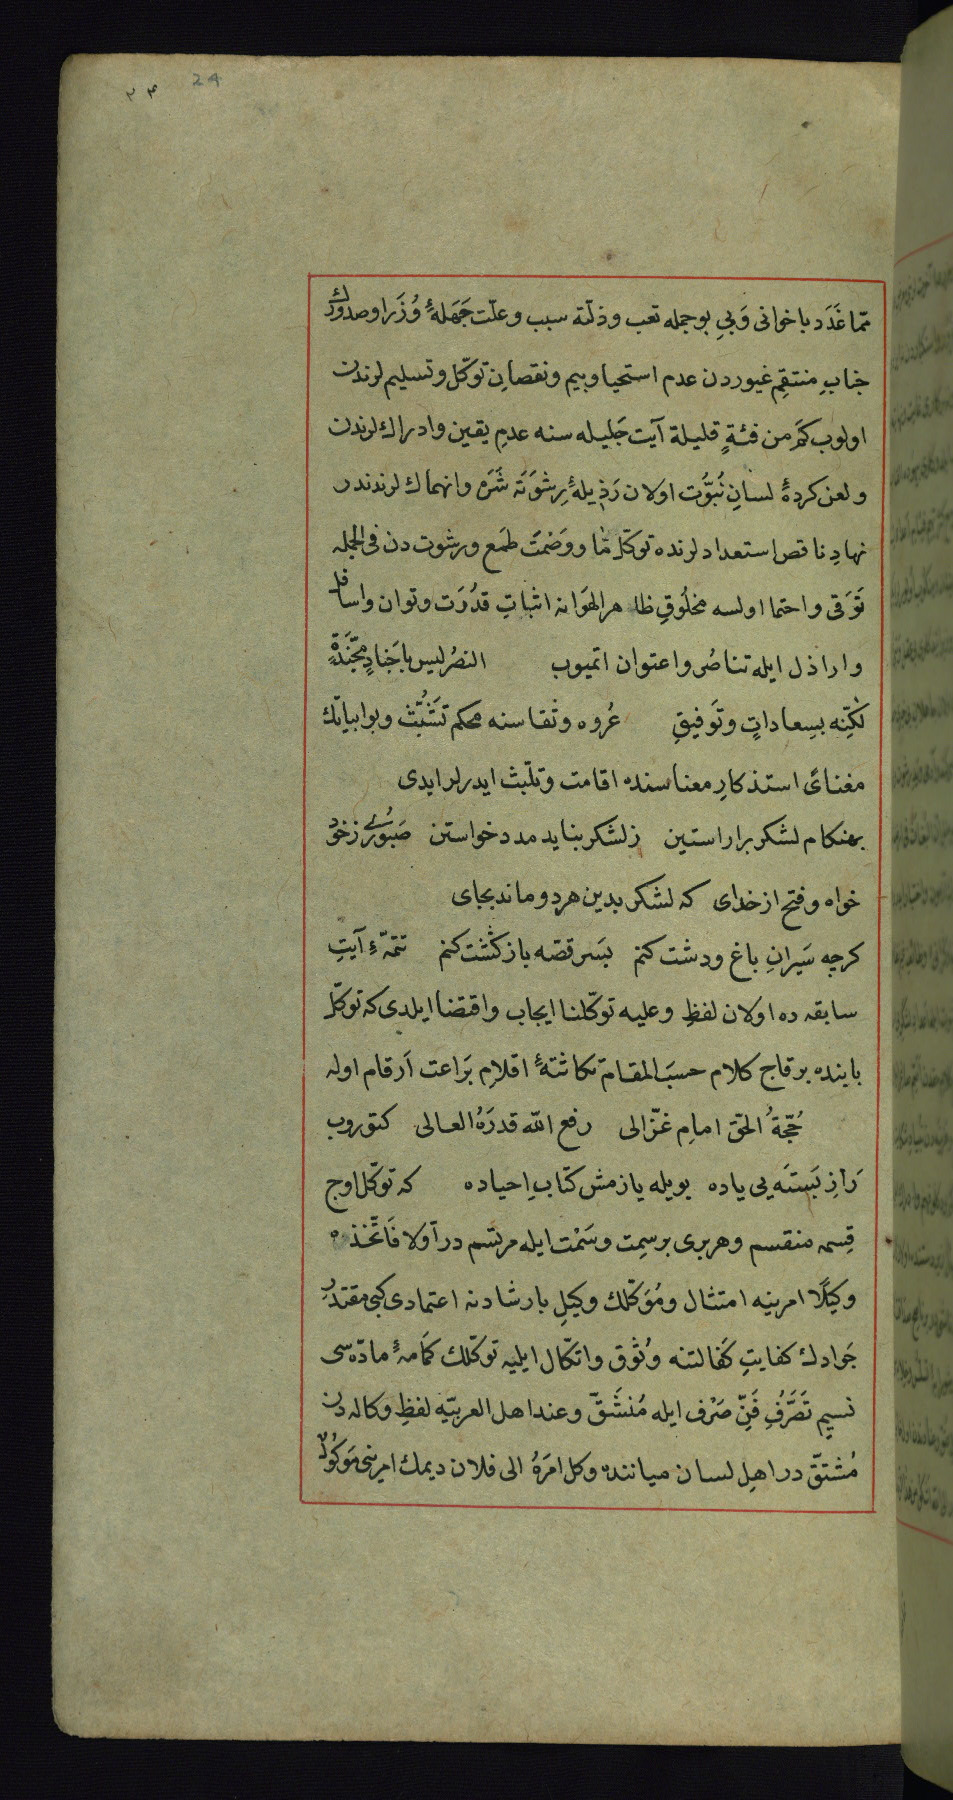 24
٢٤
ممّا غَدَد باخوانى وَبِي بوجمله تعب وذلّته سبب وعلّت جَهَلۀٔ وُزَرا وصدورك
جنابِ منتقِم غيوردن عدم استحيا وبيم ونقصانِ توكّل وتسليم لرندن
اولوب كَم من فئةٍ قليلة آيت جَليله سنه عدمِ يقين وادراك لرندن
ولعن كردۀٔ لسانِ نُبوَّت اولان رَذيلۀٔ رِشوَتَه شَرَه وانهماك لرندندر
نهادِ ناقص استعداد لرنده توكّلِ مّا ووَصْمَتِ طمَع ورشوت دن فى الجمله
تَوَقى واحتما اولسه مخلُوقِ ظاهر الهَوَانه اثباتِ قدُرَت وتوان واسافل
واراذل ايله تناصُر واعتوان اتميوب النصْر ليس باَجَنادٍ مُجَنَّدَةٍ
لكِنّه بسِعاداتٍ وتَوفيقِ عُروه وثقاسنه محكم تَشَبُّث وبوابياتك
مغناىِٔ استذكارِ معناسنده اقامت وتلبّث ايدرلر ايدى
بهنكام لشكر براراستين زلشكر بنايد مدد خواستن صَبُورى زخود
خواه وفتح از خداى كه لشكر بدين هردو ماند بجاى
كرچه سَيرانِ باغ ودشت كنم بسَر قصّه بازكشت كنم تتمّۀٔ آيتِ
سابقه ده اولان لفظِ وعليه توكّلنا ايجاب واقتضا ايلدى كه توكّل
بابنده برقاج كلام حسبَ المقام نكاشتۀٔ اقلامِ بَراعت اَرقام اوله
حُجّةُ الحقّ امامِ غزّالى رفع الله قدرَهُ العالى كتوروب
رَازِ بَستَه يى ياده بويله يازمش كتابِ احياده كه توكّل اوج
قِسمه منقسم وهربرى برسِمِت وسَمْت ايله مرتسم در اَولا فَاتَّخذه
وكيلًا امرينه امتثال ومُوَكّلك وكيلِ بارشادنه اعتمادى كبى مقتدرِ
جَوادك كفايتِ كَفالتنه وُثوق واتّكال ايليه توكّلك كمَامۀٔ مادّه سى
نسيمِ تَصَرُّفِ فَنّ صَرْف ايله مُنشَقّ وعند اهل العربيّه لفظِ وكاله دن
مُشتقّ در اهلِ لسان ميانند‌ه وكل امرَهُ الى فلان ديمك امرينى مَوكُولٌ